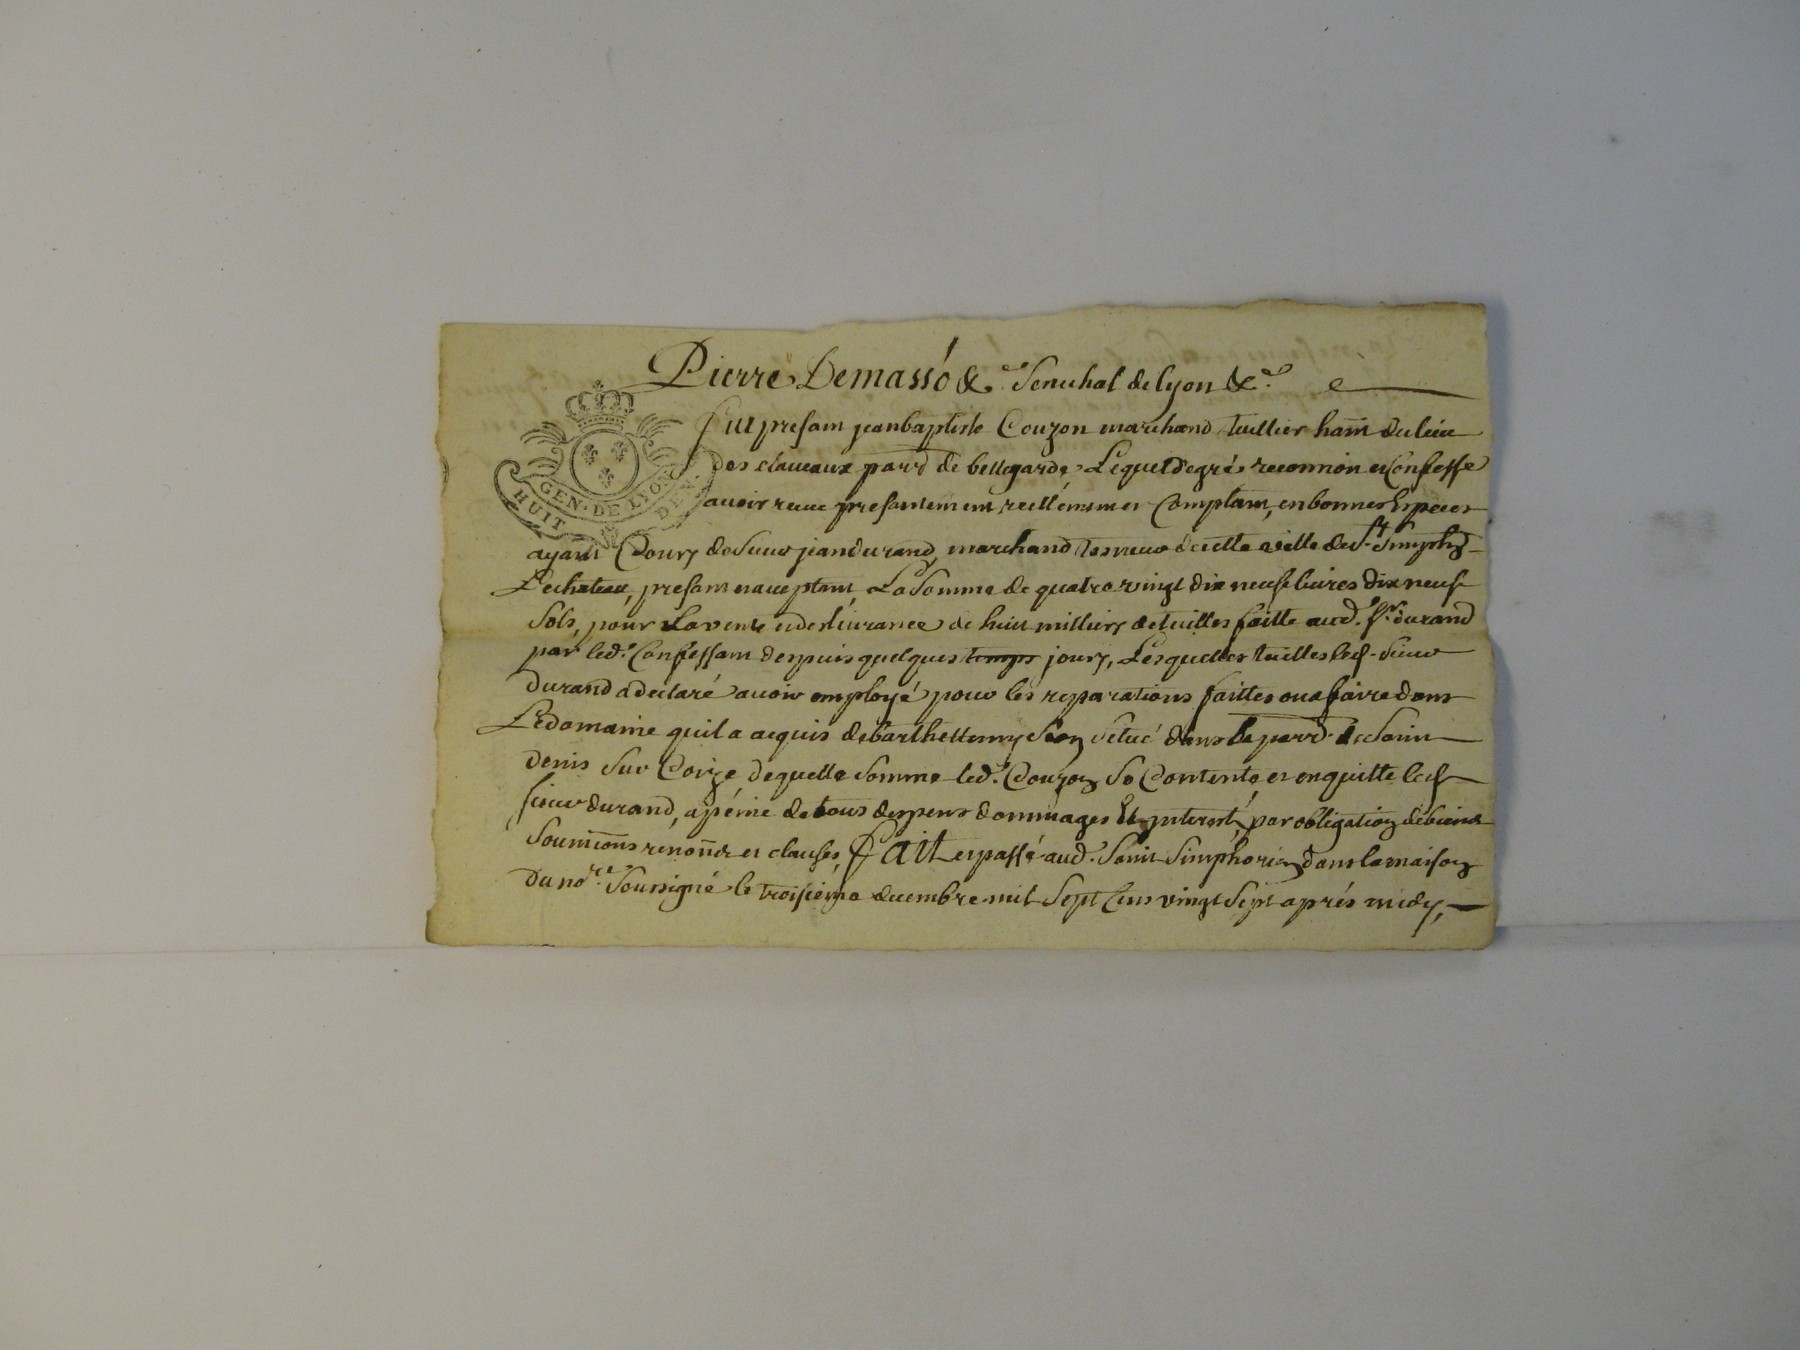 Pierre Demasso &c. Senechal de lyon &c.
GEN. DE LYON
HUIT DEN.
Fut presant jeanbaptiste Couzon marchand tuillier hant. du lieu
Des claveaux parr. de bellegarde, Lequel de gré reconnoit et Confesse
avoir receu presentement reellement et Comptant, en bonnes Especes
ayant Cours de Sieur jean durand, marchand de cette ville de St. Simphn.
Le chateau, presant et aceptant, La Somme de quatre vingt dix neuf livres dix neuf
Sols, pour La vente et deslivrance de huit milliers de tuilles faitte aud. Sr. durand
par led. Confessant despuis quelques temps jours, Lesquelles tuilles led. Sieur
Durand a declaré avoir employé pour les reparations faittes ou a faire dans
Le domaine quil a acquis de barthellemy Scitué dans la parr. de Saint
denis Sur Coize de quelle Somme led. Couzon Se Contente, et en quitte led.
Sieur durand, a peine de tous despens dommages Et interest, par obligation de biens
Soumions renonr. et clauses, Fait et passé aud. Saint Simphorien dans la maison
Du nore. Soussigné le troisieme decembre mil Sept Cens vingt Sept aprés midy,